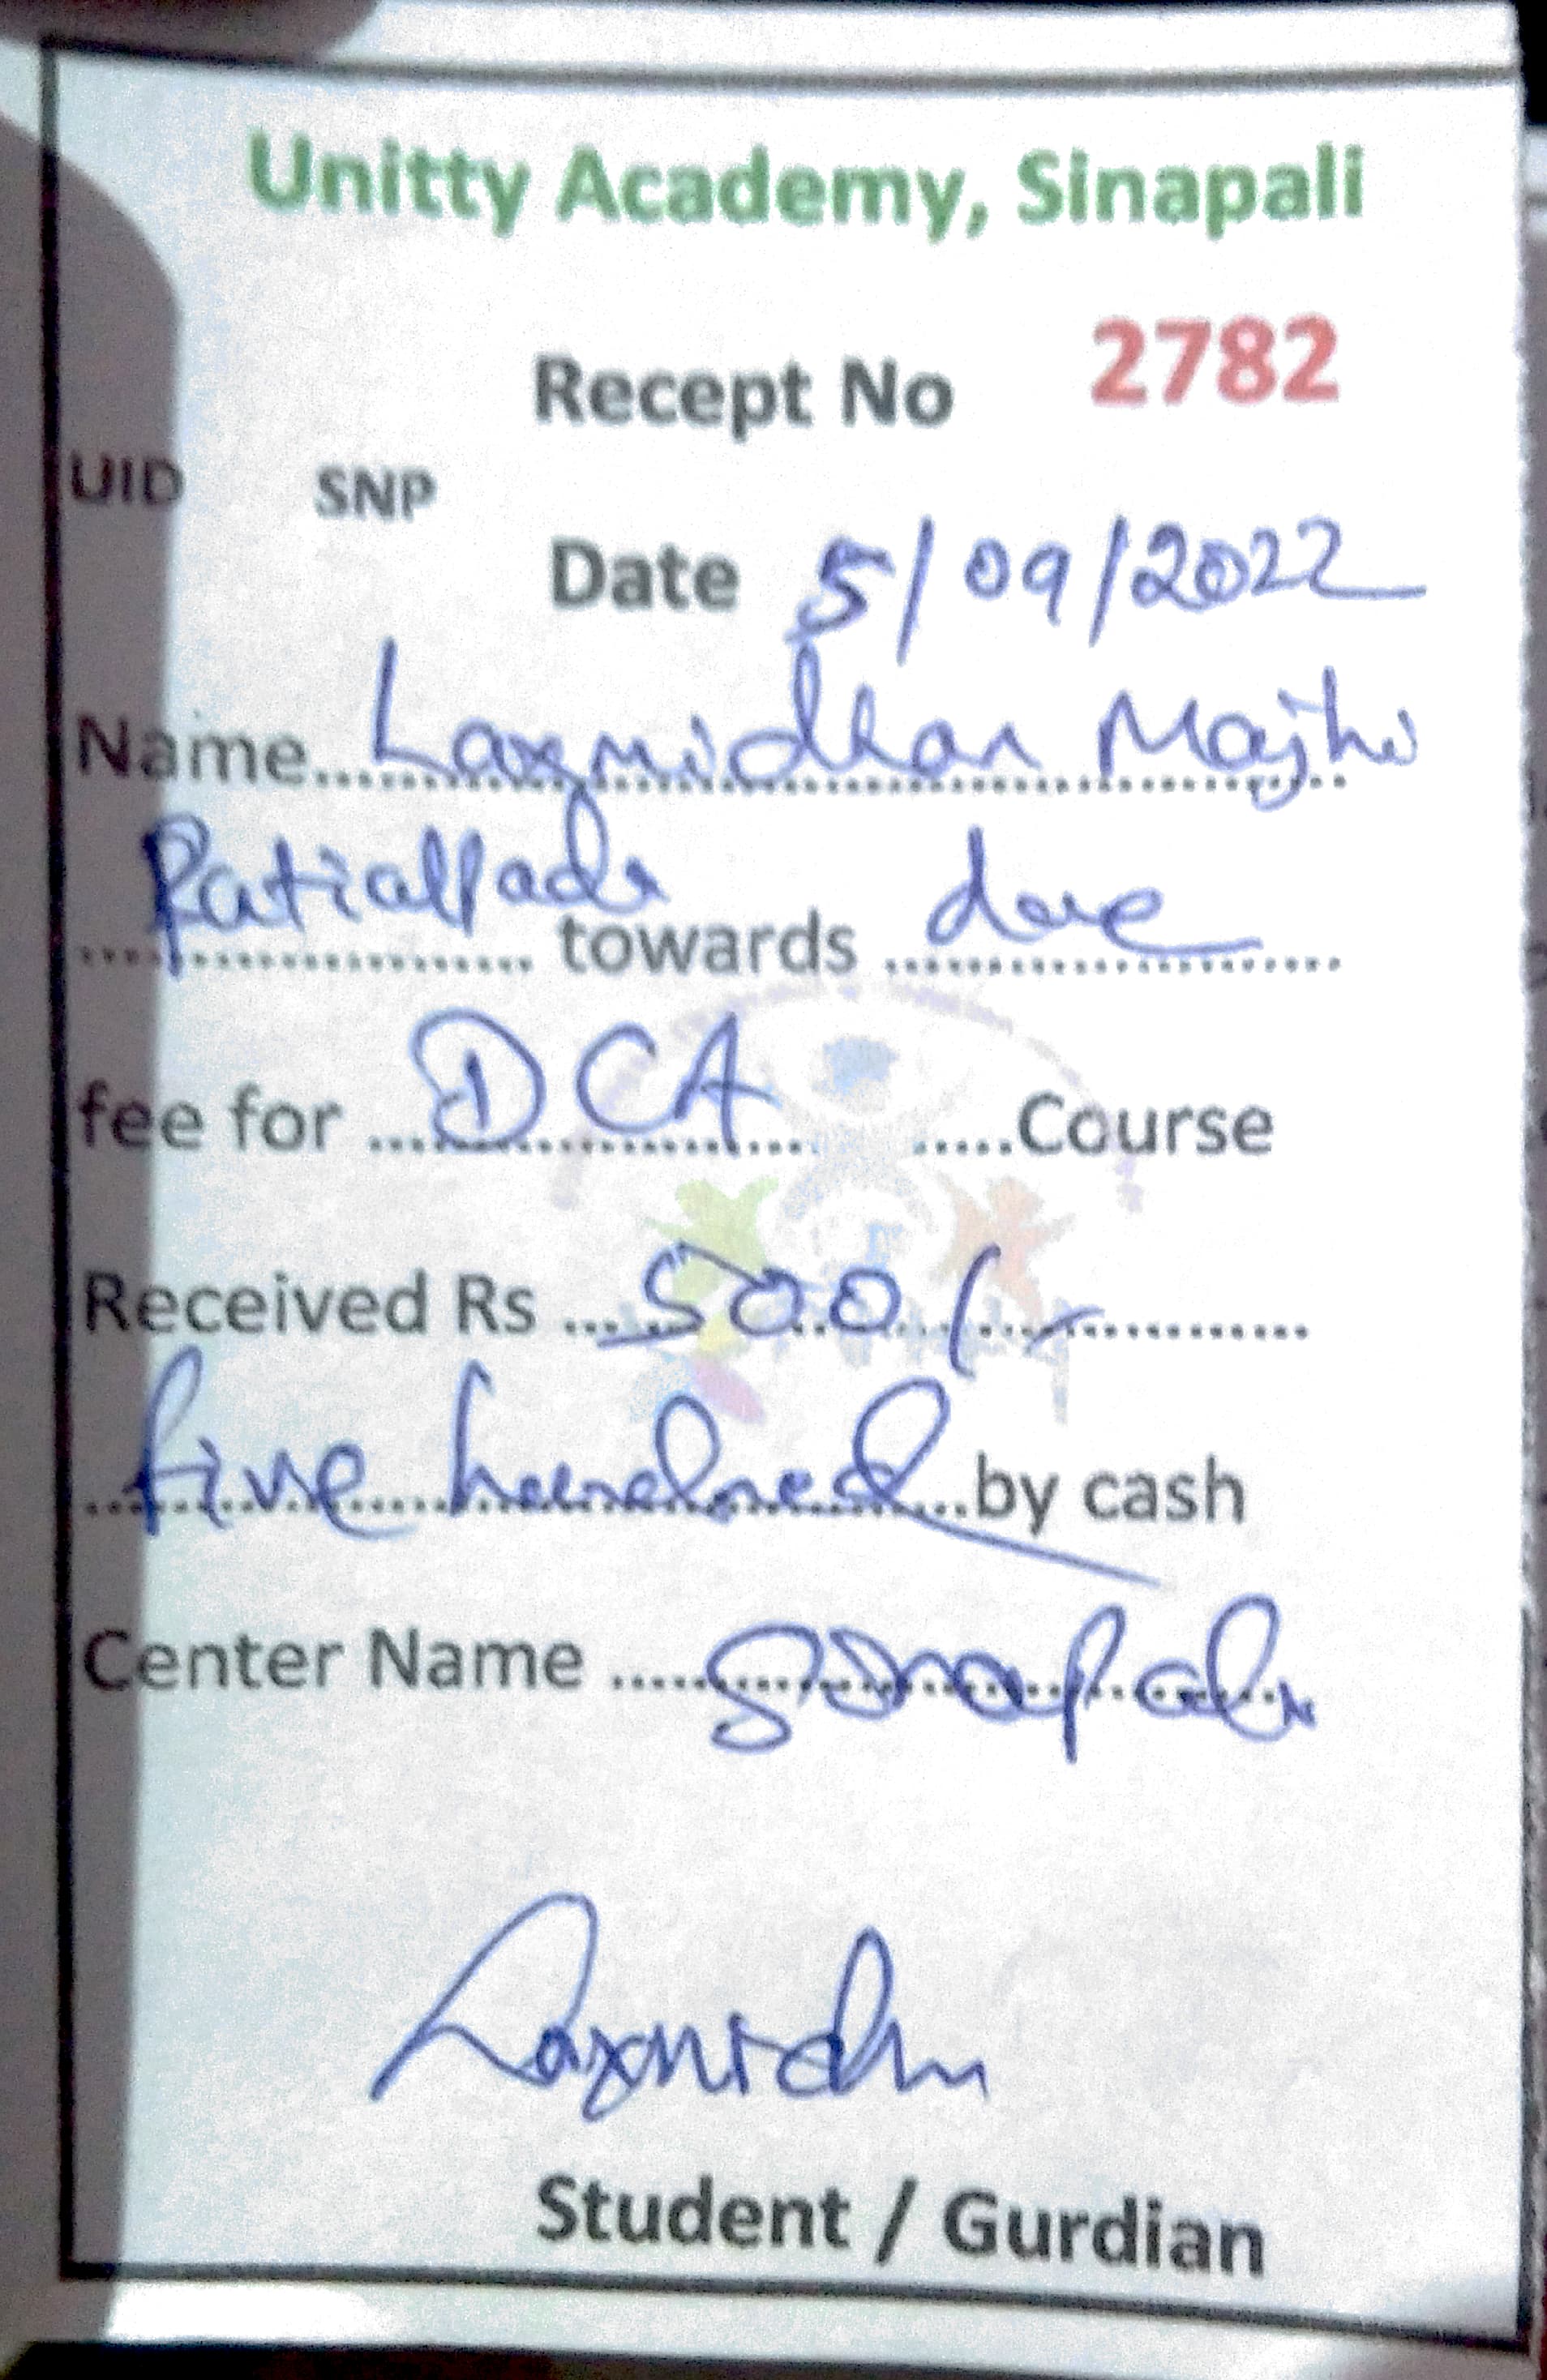 Unitty Academy, Sinapali
Recept No 2782
UID SNP
Date 5/09/2022
Name...Laxmidhar Majhi
Patialpada towards due
fee for ...DCA... .....Course
Received Rs ...500/-...
five hundred...by cash
Center Name .....Sinapali
Laxmidhar
Student / Gurdian